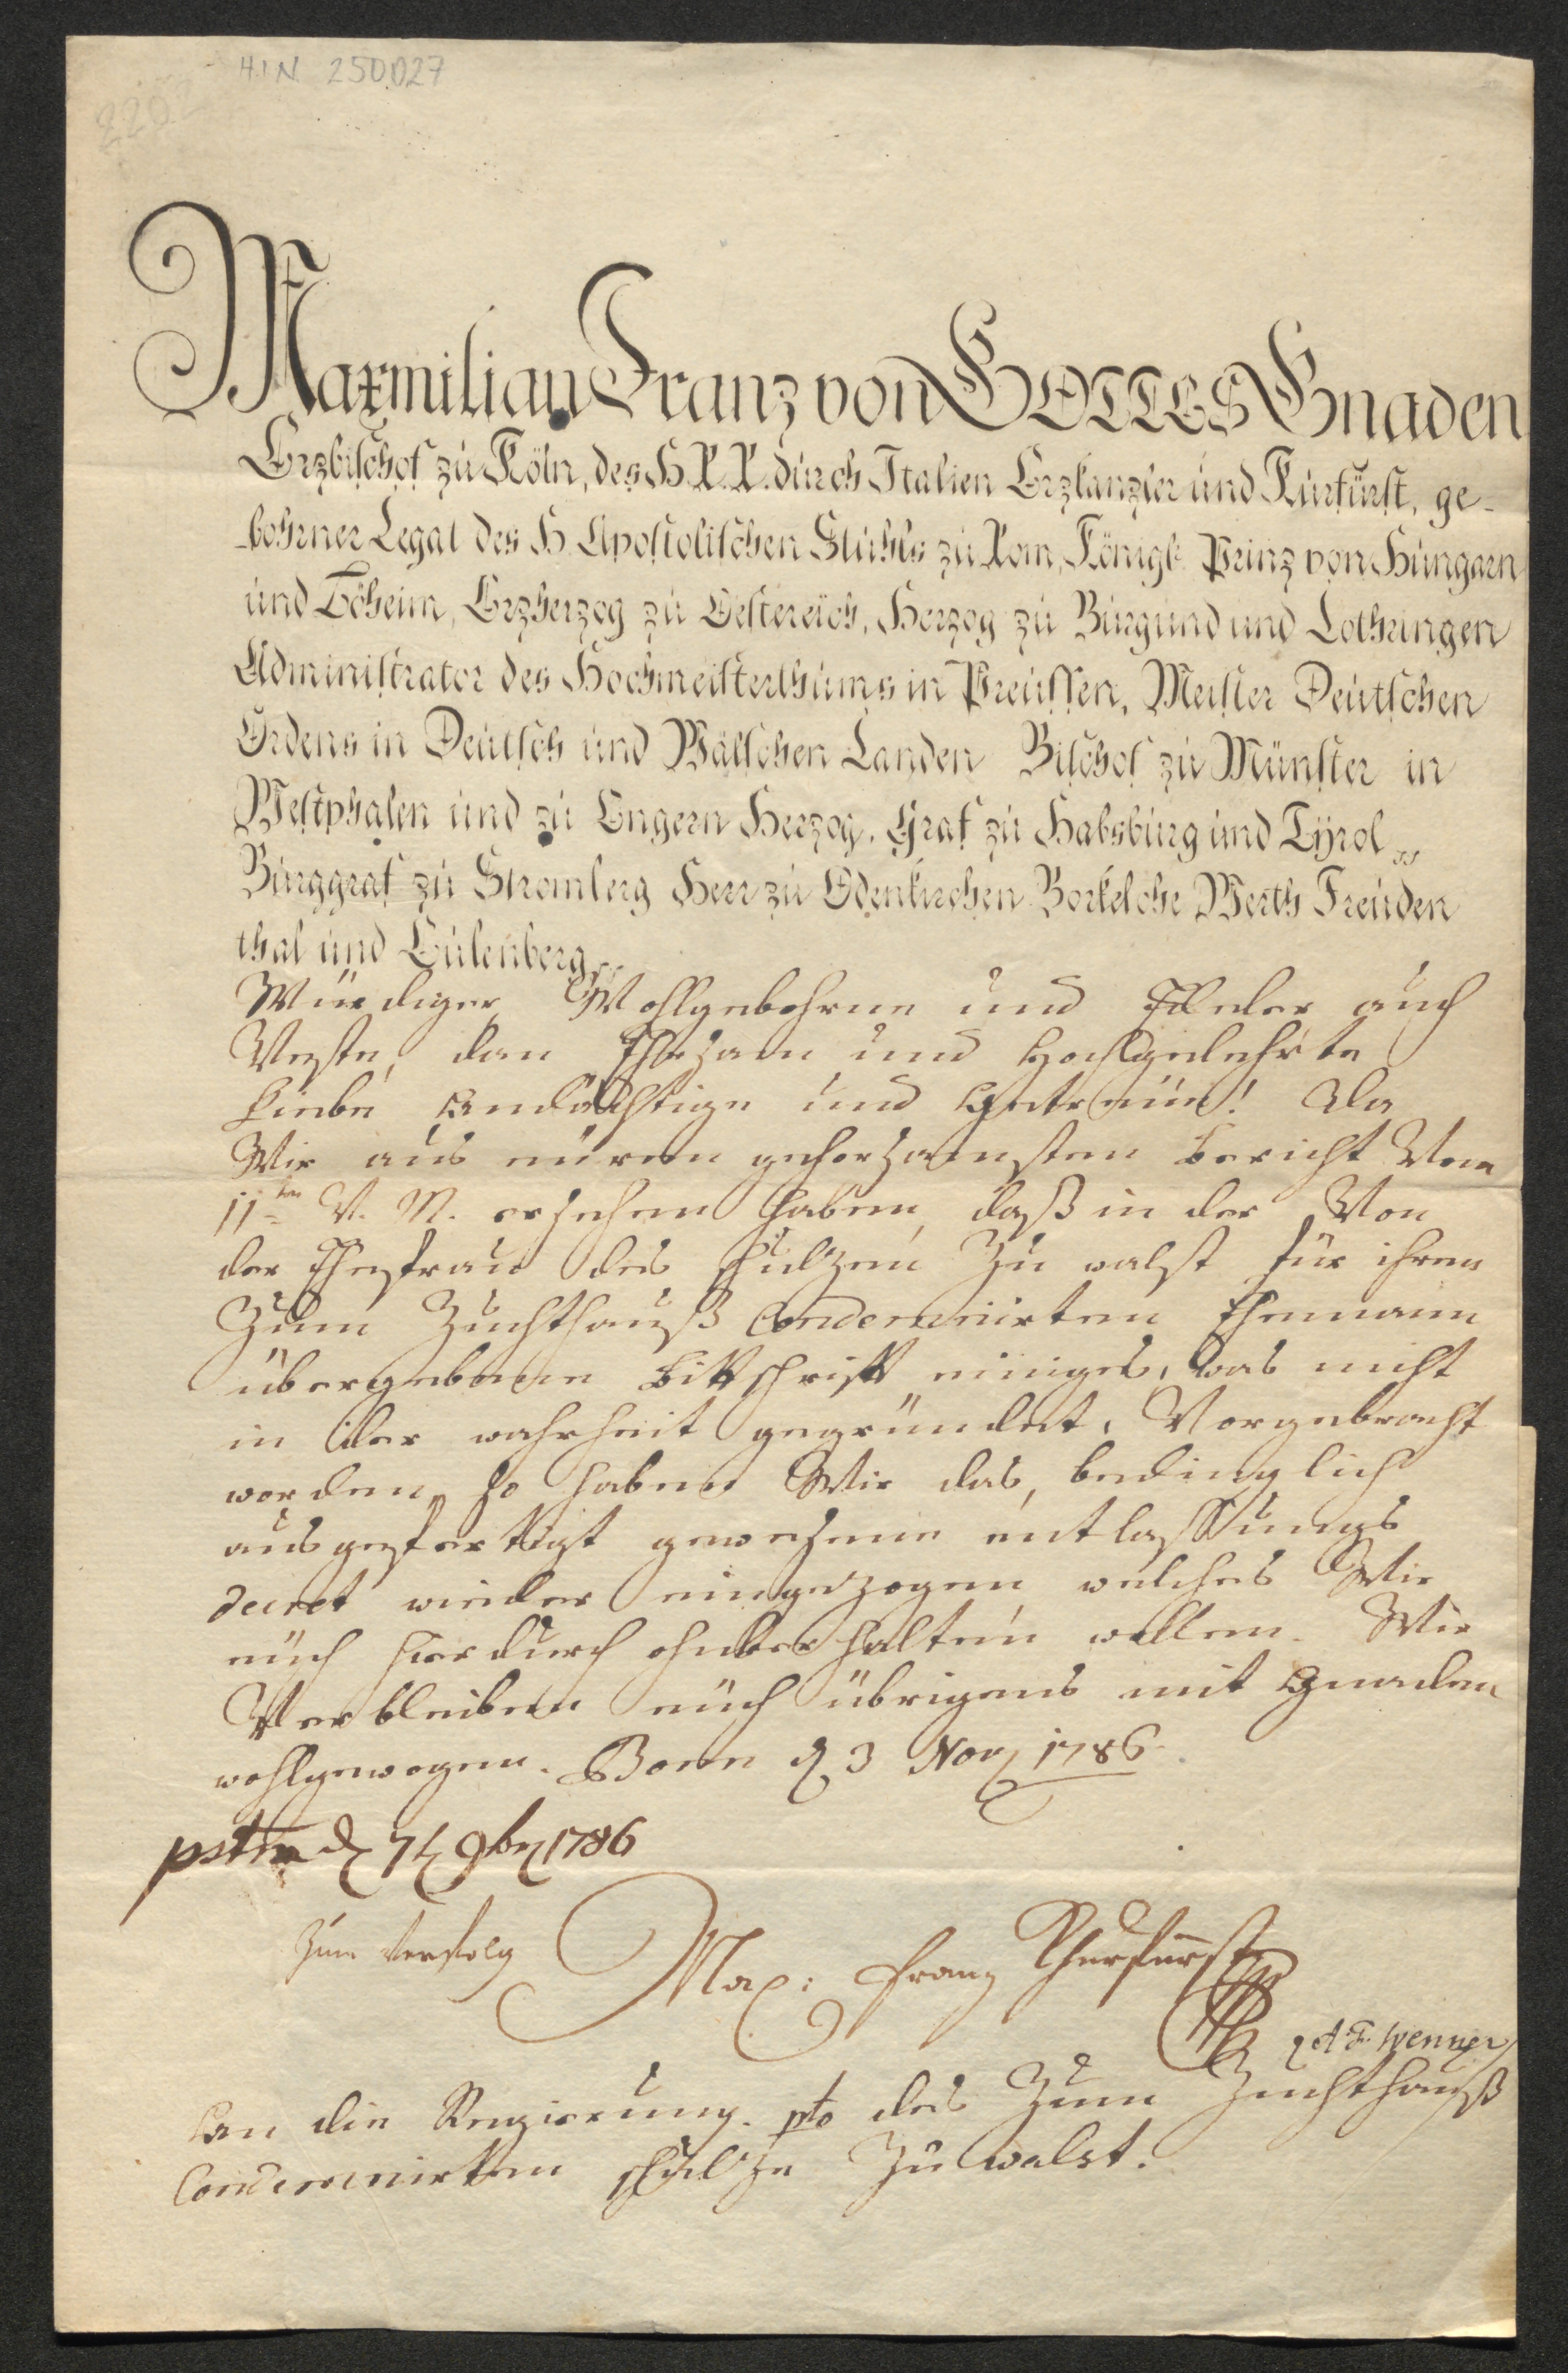 H.I.N. 250.027
2202
Maxmilian Franz von GOTTES Gnaden
Erzbischof zu Köln, des H. R. R. durch Italien Erzkanzler und Kurfürst, ge-
-bohrner Legat des H. Apostolischen Stuhls zu Rom, Königl. Prinz von Hungarn
und Böheim, Erzherzog zu Oestereich, Herzog zu Burgund und Lothringen
Administrator des Hochmeisterthums in Preussen, Meister Deutschen
Ordens in Deutsch und Wälschen Landen Bischof zu Münster in
Westphalen und zu Engern Herzog, Graf zu Habsburg und Tyrol
Burggraf zu Stromberg Herr zu Odenkirchen Borkelohe Werth Freuden
thal und Eulenberg
Würdiger, Wohlgebohrne und Edeler auch
Veste, dan Ehrsam und Hochgelehrte
Liebe Andächtige und Getreüe! Da
Wir aus eürem gehorsamsten Bericht Vom
11ten V. M. ersehen haben, daß in der Von
der Ehefrau des Schulzen Zu walst für ihren
Zum Zuchthauß Condemnirten Ehemann
übergebenen Bittschrift einiges, was nicht
in der wahrheit gegründet, Vorgebracht
worden, so haben Wir das, bedinglich
ausgefertigt gewesene entlassungs
Decret wieder eingezogen, welches Wir
eüch hierdurch ohnverhalten wollen. Wir
Verbleiben eüch übrigens mit Gnaden
wohlgewogen. Bonn d 3 Nov 1786.
pstm d 7t 9br 1786
Zum Verfolg
Max: Franz Churfürst
A F. Wenner
An die Regierung. pto des Zum Zuchthauß
Condemnirten Schulze Zu walst.